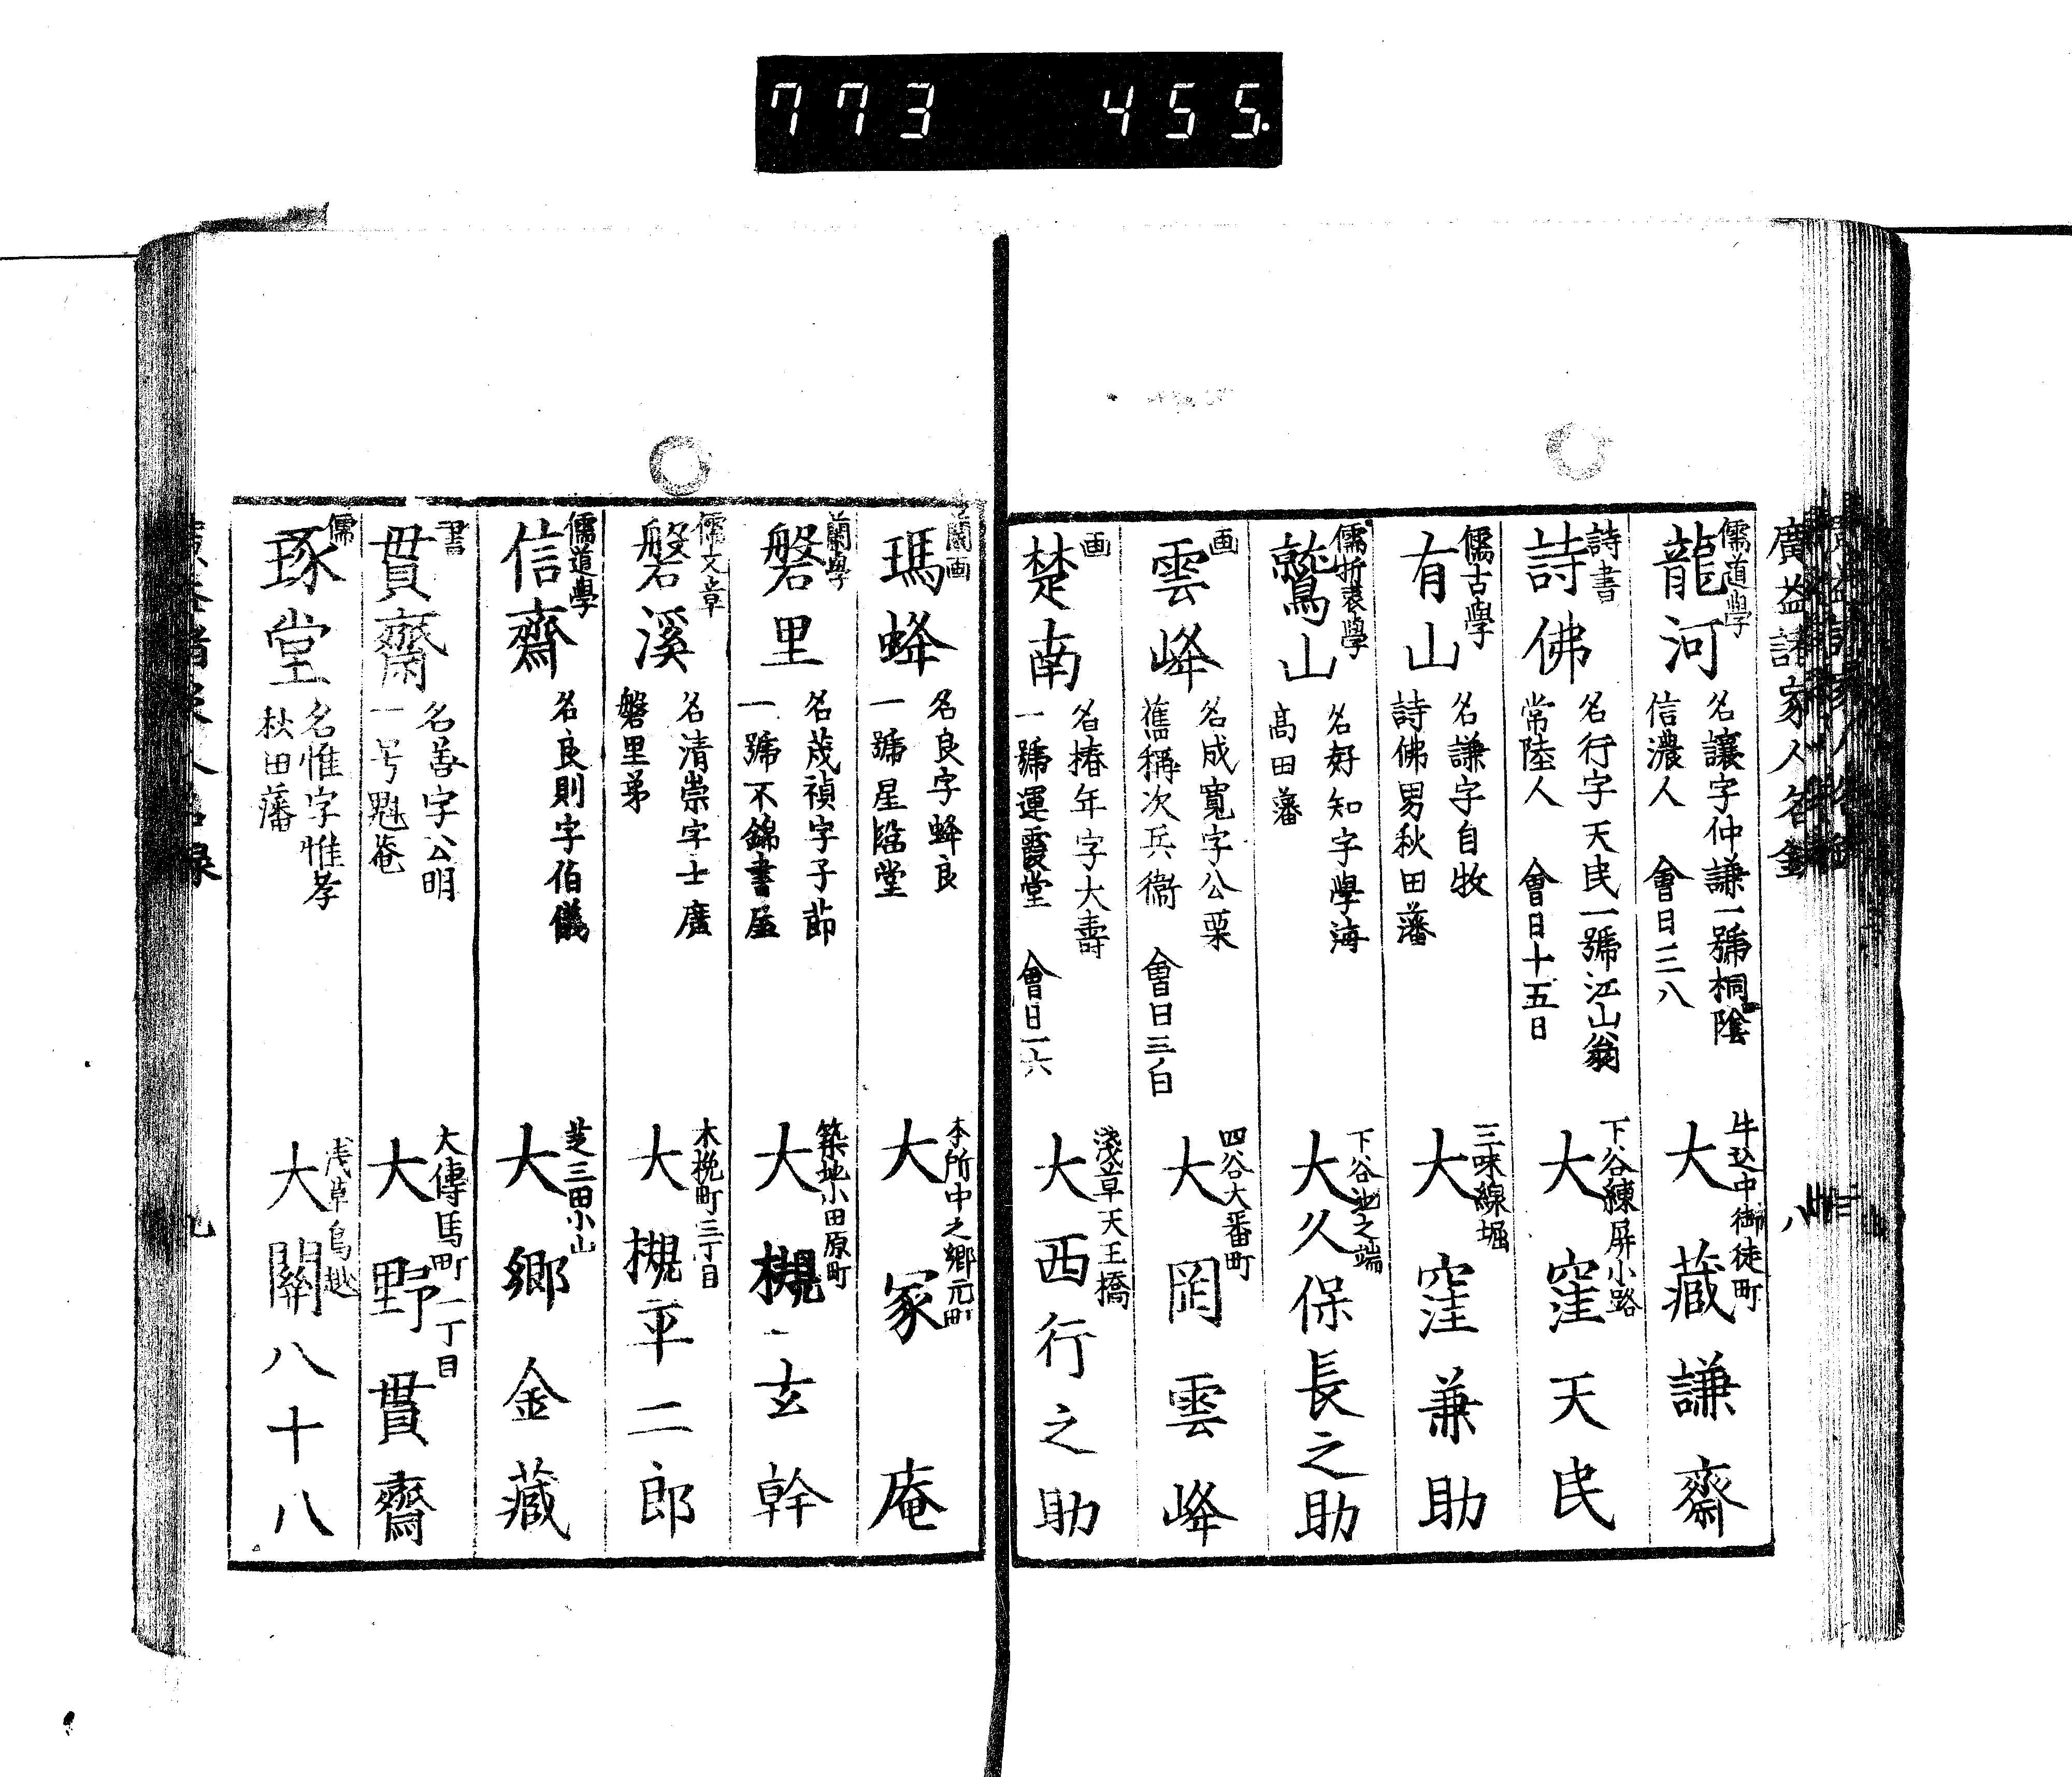 773 455.
廣益諸家人名録 八
儒道學
龍河
名讓字仲謙一號桐隂
信濃人 會日三八
牛込中御徒町
大藏謙齋
詩書
詩佛
名行字天民一號江山翁
常陸人 會日十五日
下谷練屏小路
大窪天民
儒古學
有山
名謙字自牧
詩佛男秋田藩
三味線堀
大窪兼助
儒折衷學
鷲山
名好知字學海
高田藩
下谷池之端
大久保長之助
画
雲峰
名成寛字公栗
舊稱次兵衞 會日三白
四谷大番町
大岡雲峰
画
楚南
名椿年字大壽
一號運霞堂 會日一六
淺草天王橋
大西行之助
蘭画
瑪蜂
名良字蜂良
一號星臨堂
本所中之郷元町
大冢庵
蘭學
磐里
名茂禎字子節
一號不錦書屋
築地小田原町
大槻玄幹
儒文章
磐溪
名清崇字士廣
磐里弟
木挽町三丁目
大槻平二郎
儒道學
信齋
名良則字伯儀
芝三田小山
大郷金藏
書
貫齋
名善字公明
一号魁菴
大傳馬町一丁目
大野貫齋
儒
琢堂
名惟字惟孝
秋田藩
浅草鳥越
大關八十八
九